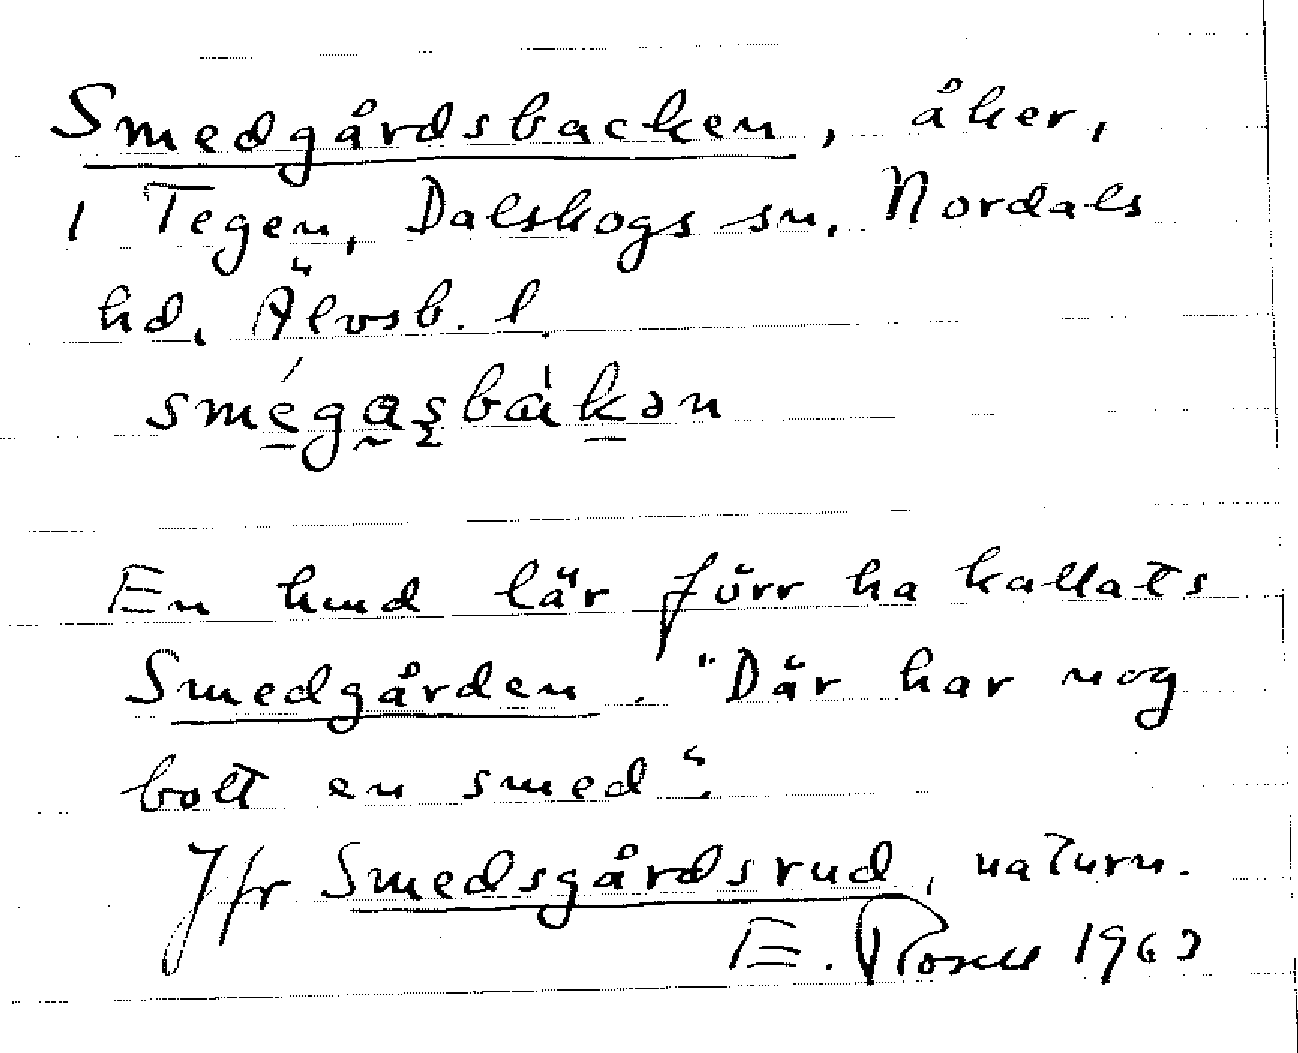 Smedgårdsbacken, åker,
i Tegen, Dalskogs sn, Nordals
hd, Älvsb. l.
smégasbàkən
En hmd lär förr ha kallats
Smedgården. "Där har nog
bott en smed".
Jfr Smedsgårdsrud, naturn.
E. Rosell 1963